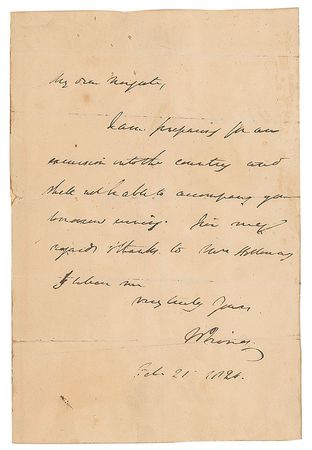 My dear
I am preparing for an
excursion into the country and
shall not be able to accompany you
tomorrow evening. Give my
regards & thanks to Mrs
& believe me
very truly Yours.
Feb. 21